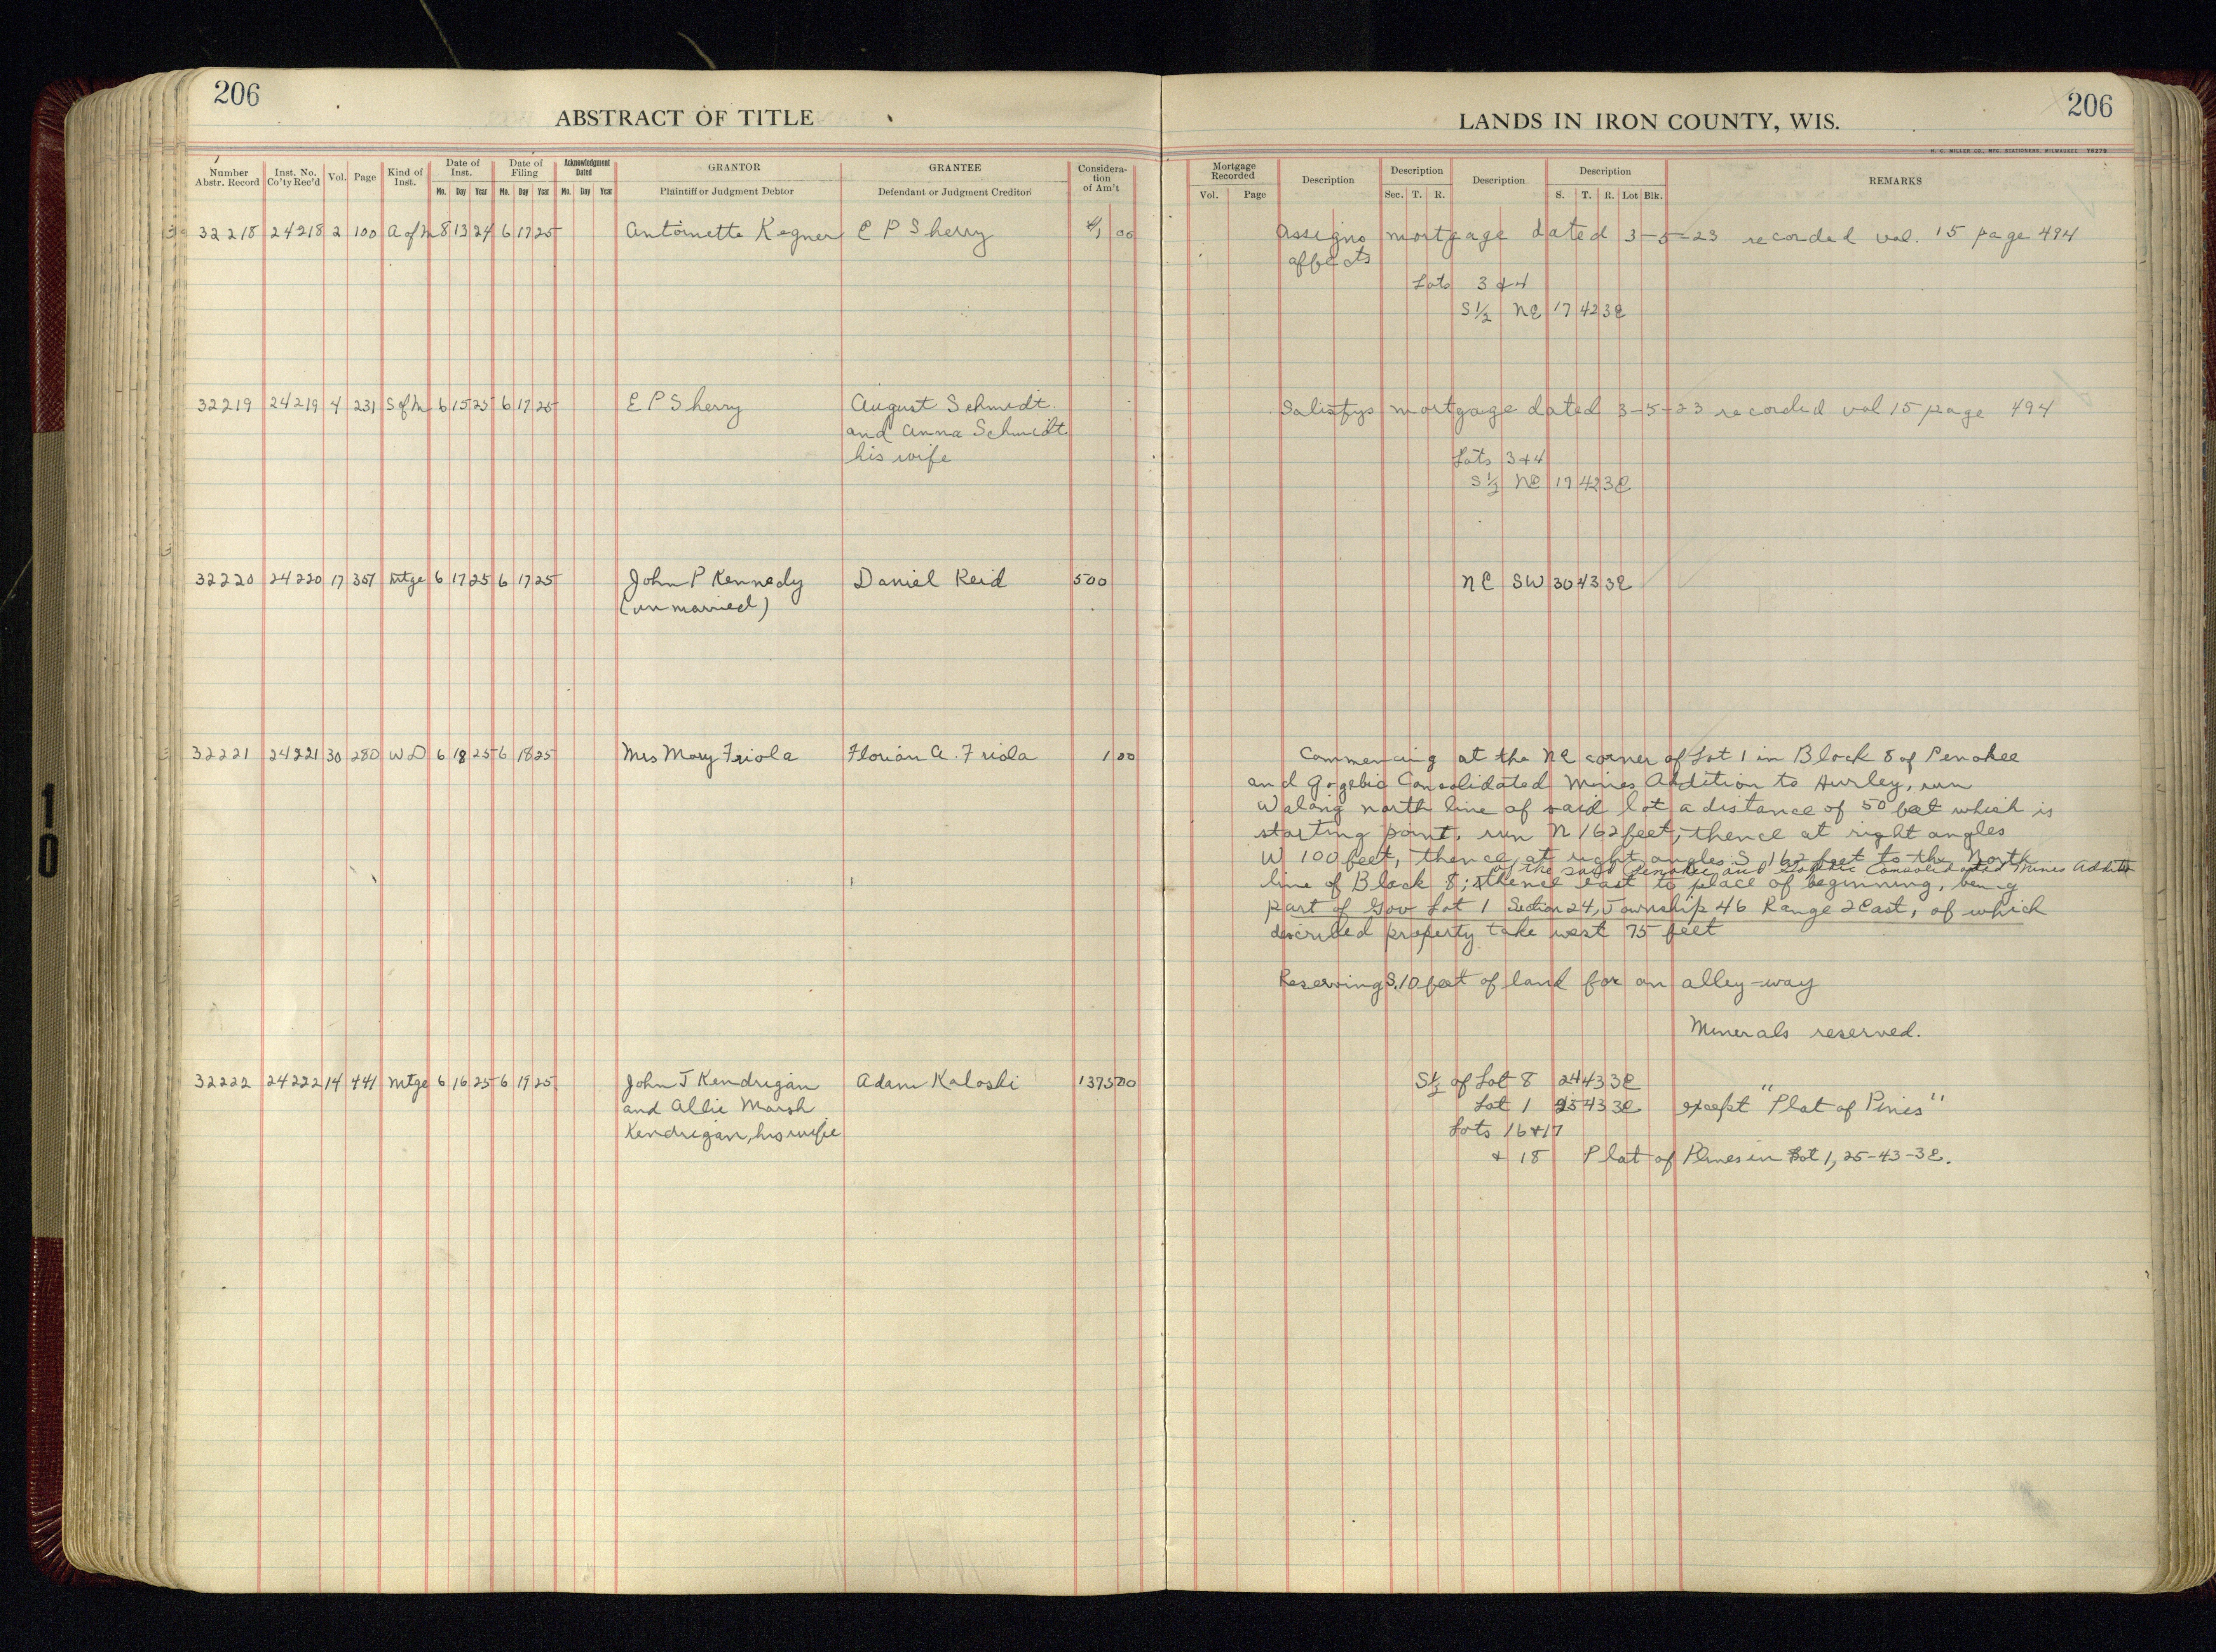 206
ABSTRACT OF TITLE
LANDS IN IRON COUNTY, WIS.
206
H. C. MILLER CO., MFG. STATIONERS, MILWAUKEE
Number Abstr. Record | Inst. No. Co'ty Rec'd | Vol. | Page | Kind of Inst. | Date of Inst. Mo. Day Year | Date of Filing Mo. Day Year | Acknowledgment Dated Mo. Day Year | GRANTOR Plaintiff or Judgment Debtor | GRANTEE Defendant or Judgment Creditor | Considera-tion of Am't | Mortgage Recorded Vol. Page | Description | Description Sec. T. R. | Description | Description S. T. R. Lot Blk. | REMARKS
32218 24218 2 100 A of M 8 13 24 6 17 25 Antoinette Kegner E P Sherry 1 00 Assigns mortgage dated 3-5-23 recorded vol. 15 page 494
affects
Lots 3 & 4
S½ NE 17 42 3E
32219 24219 4 231 S of M 6 15 25 6 17 25 E P Sherry August Schmidt Satisfys mortgage dated 3-5-23 recorded vol 15 page 494
and Anna Schmidt
his wife Lots 3 & 4
S½ NE 17 42 3E
32220 24220 17 351 Mtge 6 17 25 6 17 25 John P Kennedy Daniel Reid 500 NE SW 30 43 3E
(unmarried)
32221 24221 30 280 WD 6 18 25 6 18 25 Mrs Mary Friola Florian A. Friola 1 00 Commencing at the NE corner of Lot 1 in Block 8 of Penokee
and Gogebic Consolidated Mines Addition to Hurley, run
W along north line of said lot a distance of 50 feet which is
starting point, run N 162 feet, thence at right angles
W 100 feet, thence at right angles S 162 feet to the North
of the said Penokee and Gogebic Consolidated Mines Addit
line of Block 8; thence east to place of beginning, being
part of Gov Lot 1 Section 24, Township 46 Range 2 East, of which
described property take west 75 feet
Reserving S. 10 feet of land for an alley-way
Minerals reserved.
32222 24222 14 441 Mtge 6 16 25 6 19 25 John J Kendrigan Adam Kaloski 1375 00 S½ of Lot 8 24 43 3E
and Allie Marsh Lot 1 25 43 3E except "Plat of Pines"
Kendrigan, his wife Lots 16 & 17
& 18 Plat of Pines in Lot 1, 25-43-3E.
10